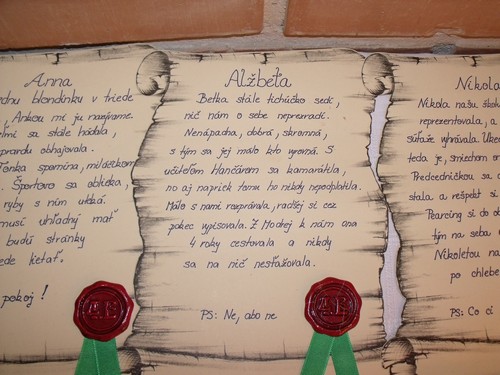 Anna
dnu blondínku v triede
, Ankou mi ju nazývame.
ľmi sa stále hádala,
pravdu obhajovala.
Tomka spomína, miláčikom
. Športovo sa oblieka,
ryby s ním utká.
musí uhľadný mať
budú stránky
ede lietať.
pokoj!
Alžbeta
Betka stále tichúčko sedí,
nič nám o sebe neprezradí.
Nenápadná, dobrá, skromná,
s tým sa jej málo kto vyrovná. S
učiteľom Hančárom sa kamarátila,
no aj napriek tomu ho nikdy neopľatila.
Málo s nami rozprávala, radšej si cez
pokec vypisovala. Z Modrej k nám ona
4 roky cestovala a nikdy
sa na nič nesťažovala.
PS: Ne, abo ne
Nikola
Nikola našu škol
reprezentovala, a
súťaže vyhrávala. Uke
teda je, smiechom n
Predsedníčkou sa
stala a rešpekt si
Pearcing si do
tým na seba
Nikoletou na
po chlebe
PS: Čo ci